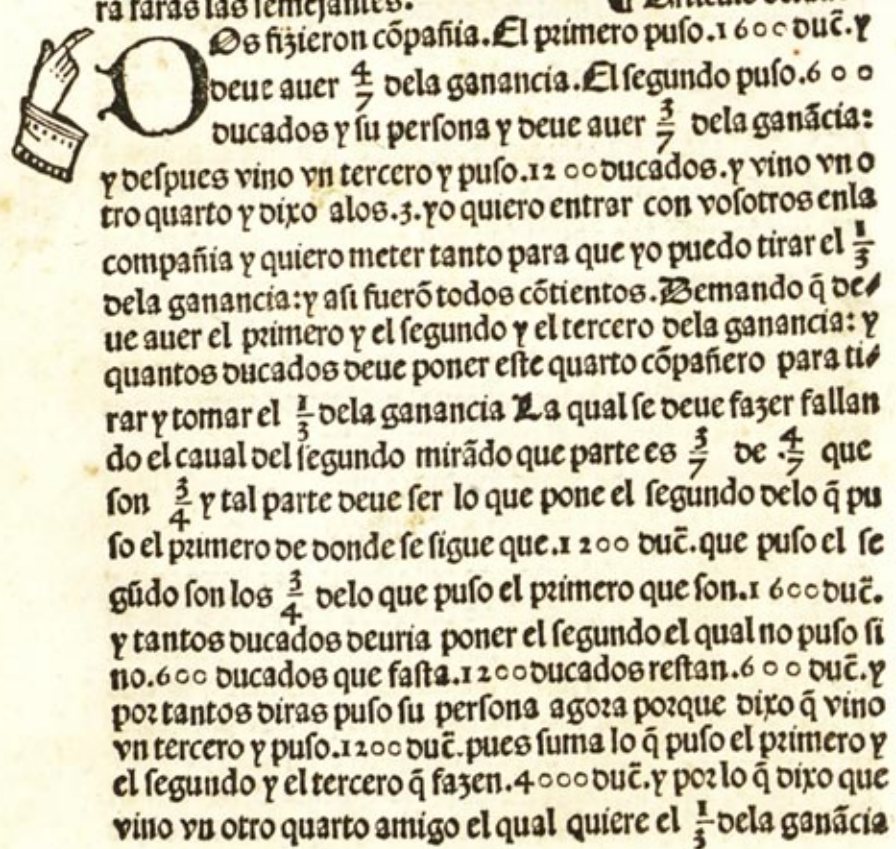 ra faras las semejantes.
DOs fizieron cõpañia. El primero puso.1600 duc̃. y
deue auer 4/7 dela ganancia. El segundo puso.600
ducados y su persona y deue auer 3/7 dela ganãcia:
y despues vino vn tercero y puso.1200 ducados. y vino vn o
tro quarto y dixo alos.3. yo quiero entrar con vosotros enla
compañia y quiero meter tanto para que yo puedo tirar el 1/3
dela ganancia: y asi fuerõ todos cõtientos. Demando q̃ de/
ue auer el primero y el segundo y el tercero dela ganancia: y
quantos ducados deue poner este quarto cõpañero para ti/
rar y tomar el 1/3 dela ganancia La qual se deue fazer fallan
do el caual del segundo mirãdo que parte es 3/7 de .4/7 que
son 3/4 y tal parte deue ser lo que pone el segundo delo q̃ pu
so el primero de donde se sigue que.1200 duc̃. que puso el se
gũdo son los 3/4 delo que puso el primero que son.1600 duc̃.
y tantos ducados deuria poner el segundo el qual no puso si
no.600 ducados que fasta.1200 ducados restan.600 duc̃. y
por tantos diras puso su persona agora porque dixo q̃ vino
vn tercero y puso.1200 duc̃. pues suma lo q̃ puso el primero y
el segundo y el tercero q̃ fazen.4000 duc̃. y por lo q̃ dixo que
vino vn otro quarto amigo el qual quiere el 1/3 dela ganãcia